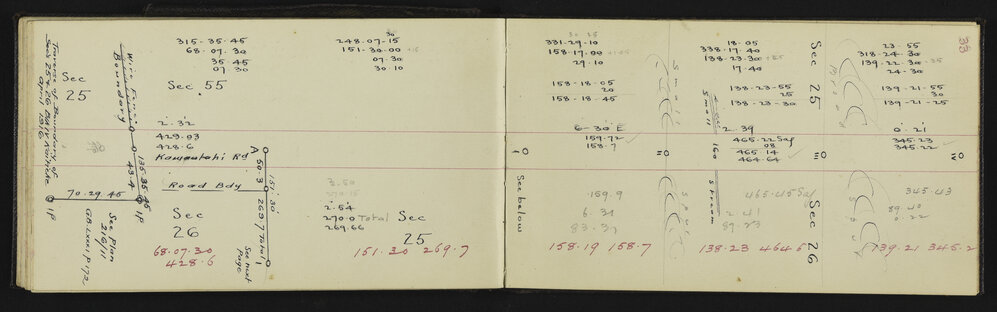 Traverse of Boundary of
Secs 25 & 26 Blk IV
April 1916
Sec
25
Wire Fence
Boundary
315-35-45
68-07-30
35-45
07-30
Sec 55
2-32
429.03
428.6
Kawautahi Rd
Road Bdy
135-35-45
43.4
70.29.45
IP
IP
See Plan
216/11
G.B. LXXXI P 172
Sec
26
68.07.30
428.6
A
50.3
151°30'
269.7 Total
See next
Page
30
248-07-15
151-30-00 +15
07-30
30-10
2-54
270.0 Total
269.66
Sec
25
151.30 269.7
30 25
331-29-10
158-17-00
29-10
158-18-05
20
158-18-45
6-30 E
159.72
158.7
I
See below
159.9
6.31
83.3
158.19 158.7
Small
18-05
338-17-40
138-23-30
17-40
138-23-55
25
138-23-30
Small
160
stream
2.39
465.22 Sag
08
465.14
464.64
II
III
465.45 Sag
2.41
89.23
138.23 464.6
Sec 25
Sec 26
33
23-55
318-24-30
139-22-30
24-30
139-21-55
30
139-21-25
0.21
345.23
345.22
IV
345.43
89.40
0.22
139.21 345.2